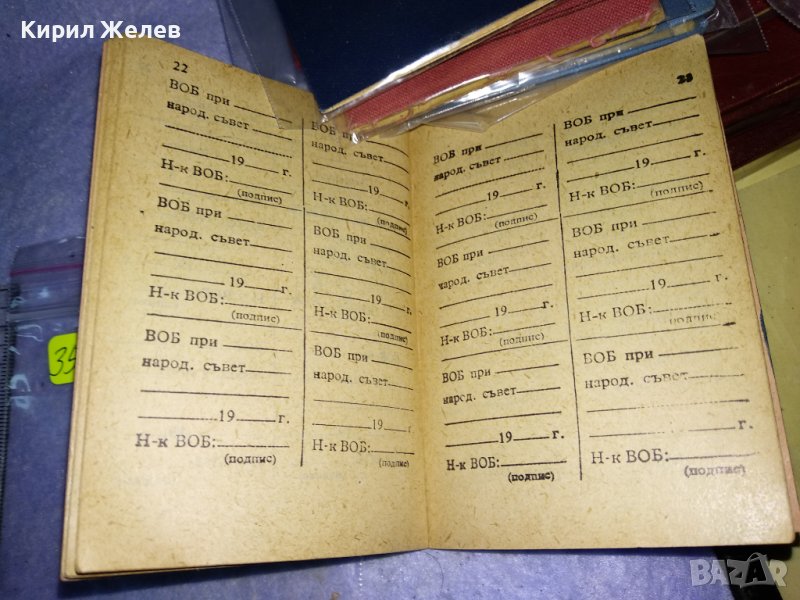 Кирил Желев
22
ВОБ при
народ. съвет
19 г.
Н-к ВОБ:
(подпис)
ВОБ при
народ. съвет
19 г.
Н-к ВОБ:
(подпис)
ВОБ при
народ. съвет
19 г.
Н-к ВОБ:
(подпис)
ВОБ при
народ. съвет
19 г.
Н-к ВОБ:
(подпис)
ВОБ при
народ. съвет
19 г.
Н-к ВОБ:
(подпис)
ВОБ при
народ. съвет
19 г.
Н-к ВОБ:
(подпис)
23
ВОБ при
народ. съвет
19 г.
Н-к ВОБ:
(подпис)
ВОБ при
народ. съвет
19 г.
Н-к ВОБ:
(подпис)
ВОБ при
народ. съвет
19 г.
Н-к ВОБ:
(подпис)
ВОБ при
народ. съвет
19 г.
Н-к ВОБ:
(подпис)
ВОБ при
народ. съвет
19 г.
Н-к ВОБ:
(подпис)
ВОБ при
народ. съвет
19 г.
Н-к ВОБ:
(подпис)
BAZAR